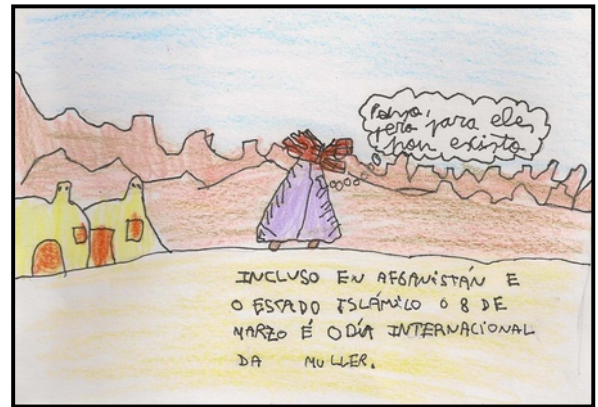 pero para eles
non existo
INCLUSO EN AFGANISTÁN E
O ESTADO ISLÁMICO O 8 DE
MARZO É O DÍA INTERNACIONAL
DA MULLER.